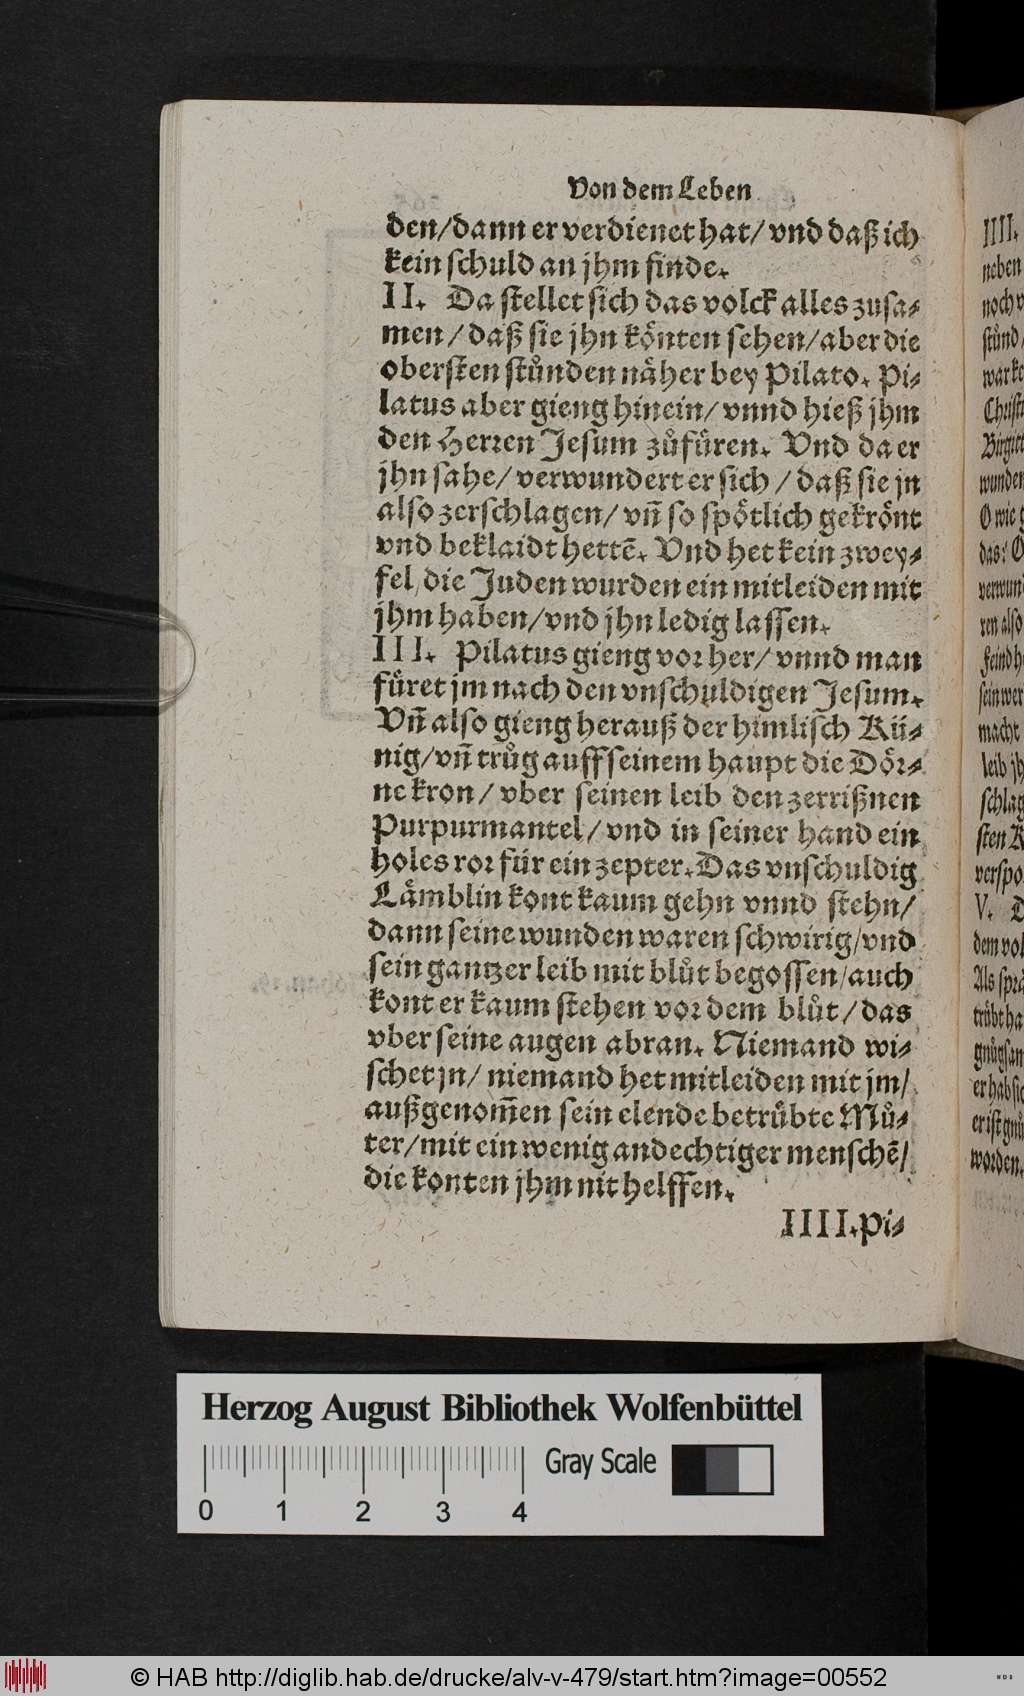 Von dem Leben
den/dann er verdienet hat/ vnd daß ich
kein schuld an jhm finde.
II. Da stellet sich das volck alles zusa-
men/daß sie jhn könten sehen/aber die
obersten stůnden näher bey Pilato. Pi-
latus aber gieng hinein/ vnnd hieß jhm
den Herren Jesum zůfüren. Vnd da er
jhn sahe/ verwundert er sich / daß sie jn
also zerschlagen/ vn̄ so spötlich gekrönt
vnd beklaidt hettē. Vnd het kein zwey-
fel/die Juden wurden ein mitleiden mit
jhm haben/vnd jhn ledig lassen.
III. Pilatus gieng vor her/ vnnd man
füret jm nach den vnschuldigen Jesum.
Vn̄ also gieng herauß der himlisch Kü-
nig/vn̄ trůg auff seinem haupt die Dör-
ne kron/ vber seinen leib den zerrißnen
Purpurmantel/ vnd in seiner hand ein
holes ror für ein zepter. Das vnschuldig
Lämblin kont kaum gehn vnnd stehn/
dann seine wunden waren schwirig/vnd
sein gantzer leib mit blůt begossen/auch
kont er kaum stehen vor dem blůt/ das
vber seine augen abran. Niemand wi-
schet jn/ niemand het mitleiden mit jm/
außgenom̄en sein elende betrübte Můͤ-
ter/mit ein wenig andechtiger menschē/
die konten jhm nit helffen.
IIII. Pi-
IIII.
neben
noch v
stůnd/
war ke
Christ
Birgitt
wunden
O wie g
das! O
verwun
ren also
feind h
sein wer
macht
leib jh
schlag
sten K
verspo
V. D
dem vol
Als sprä
trübt ha
gnůgsan
er hab sic
er ist gnů
worden.
Herzog August Bibliothek Wolfenbüttel
Gray Scale
0 1 2 3 4
© HAB http://diglib.hab.de/drucke/alv-v-479/start.htm?image=00552